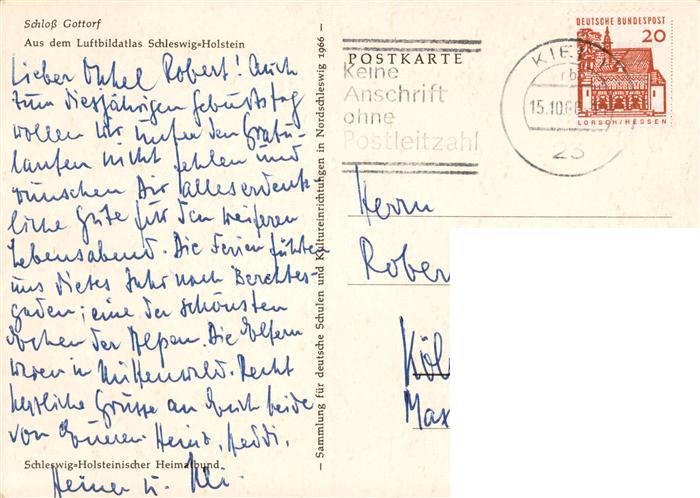 Schloß Gottorf
Aus dem Luftbildatlas Schleswig-Holstein
Lieber Onkel Robert! Auch
zum diesjährigen Geburtstag
wollen wir unter den Gratu-
lanten nicht fehlen und
wünschen Dir alles erdenk-
liche Gute für den weiteren
Lebensabend. Die Ferien führten
uns dieses Jahr nach Berchtes-
gaden; eine der schönsten
Ecken der Alpen. Die Eltern
waren in Mittenwald. Recht
herzliche Grüsse an Euch beide
von Eurem Heinz, Heddi,
Schleswig-Holsteinischer Heimatbund
Heiner u.
— Sammlung für deutsche Schulen und Kultureinrichtungen in Nordschleswig 1966 —
POSTKARTE
Keine
Anschrift
ohne
Postleitzahl
KIEL
15.10.66
23
DEUTSCHE BUNDESPOST
20
LORSCH/HESSEN
Herrn
Rober
Köl
Max